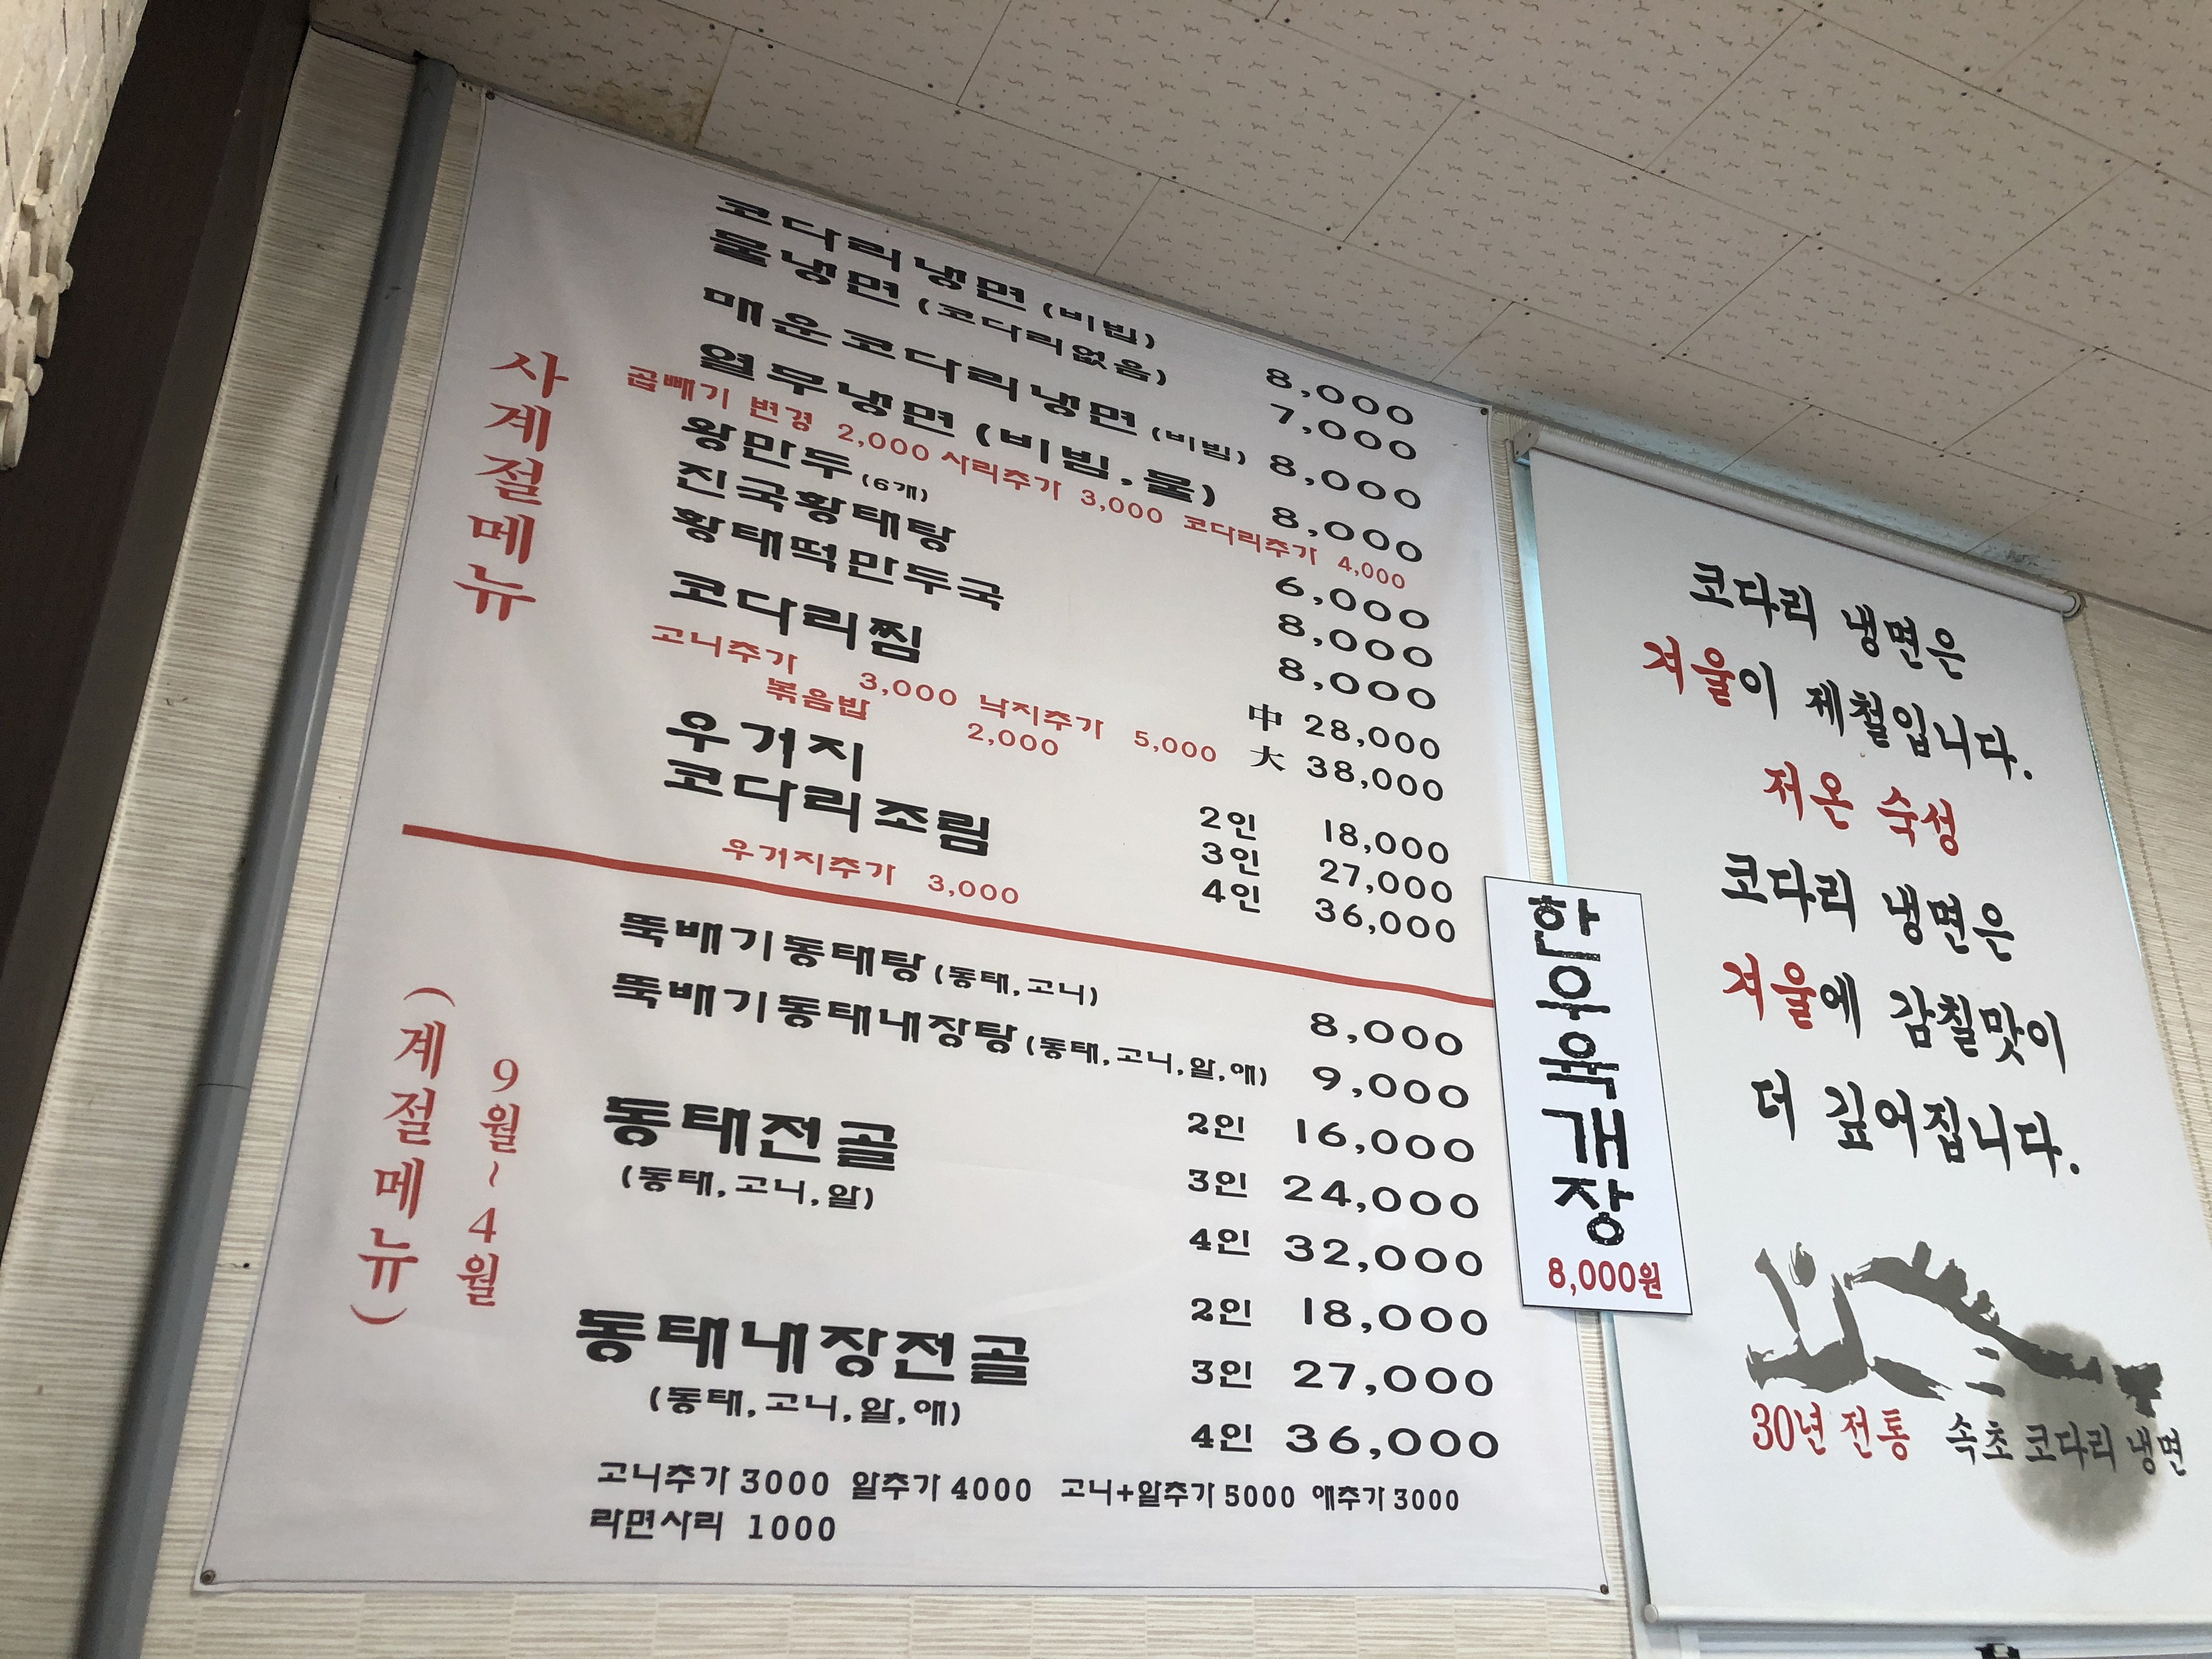 사계절메뉴
코다리냉면 (비빔) 8,000
물냉면 (코다리없음) 7,000
매운코다리냉면 (비빔) 8,000
열무냉면 (비빔,물) 8,000
곱빼기 변경 2,000 사리추가 3,000 코다리추가 4,000
왕만두 (6개) 6,000
진국황태탕 8,000
황태떡만두국 8,000
코다리찜 中 28,000
大 38,000
고니추가 3,000 낙지추가 5,000
볶음밥 2,000
우거지
코다리조림
2인 18,000
3인 27,000
4인 36,000
우거지추가 3,000
(계절메뉴)
9월~4월
뚝배기동태탕 (동태,고니) 8,000
뚝배기동태내장탕 (동태,고니,알,애) 9,000
동태전골
(동태,고니,알)
2인 16,000
3인 24,000
4인 32,000
동태내장전골
(동태,고니,알,애)
2인 18,000
3인 27,000
4인 36,000
고니추가 3000 알추가 4000 고니+알추가 5000 애추가 3000
라면사리 1000
한우육개장
8,000원
코다리 냉면은
겨울이 제철입니다.
저온 숙성
코다리 냉면은
겨울에 감칠맛이
더 깊어집니다.
30년 전통 속초 코다리 냉면